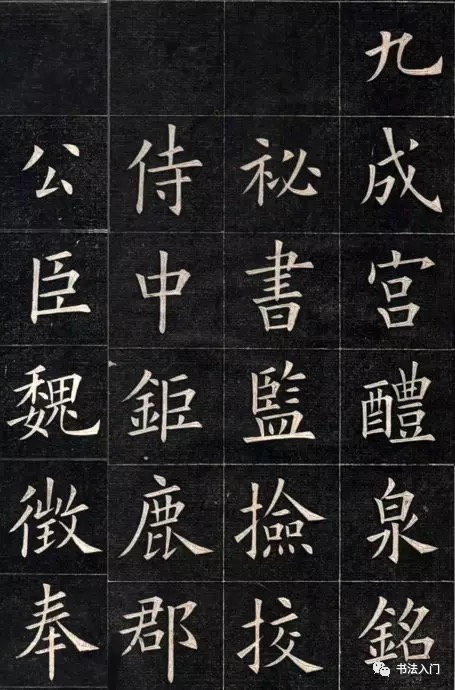 九成宮醴泉銘
祕書監撿挍
侍中鉅鹿郡
公臣魏徵奉
书法入门